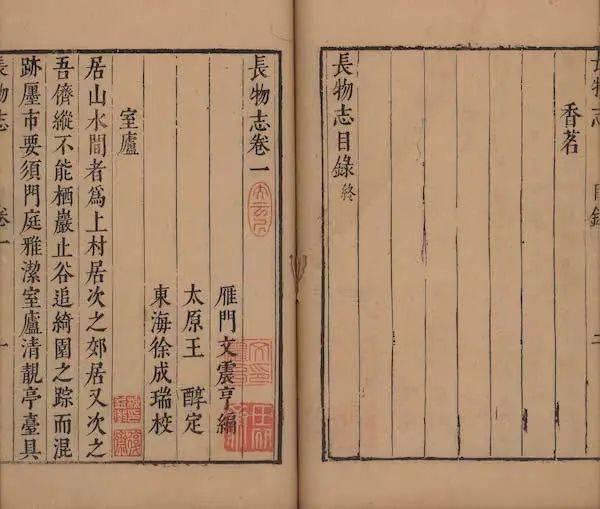 長物志 目錄
香茗
長物志目錄 終
長物志卷一
雁門文震亨編
太原王 醇定
東海徐成瑞校
室廬
居山水間者爲上村居次之郊居又次之
吾儕縱不能栖巖止谷追綺園之踪而混
跡廛市要須門庭雅潔室廬清靚亭臺具
長物志 卷一 一